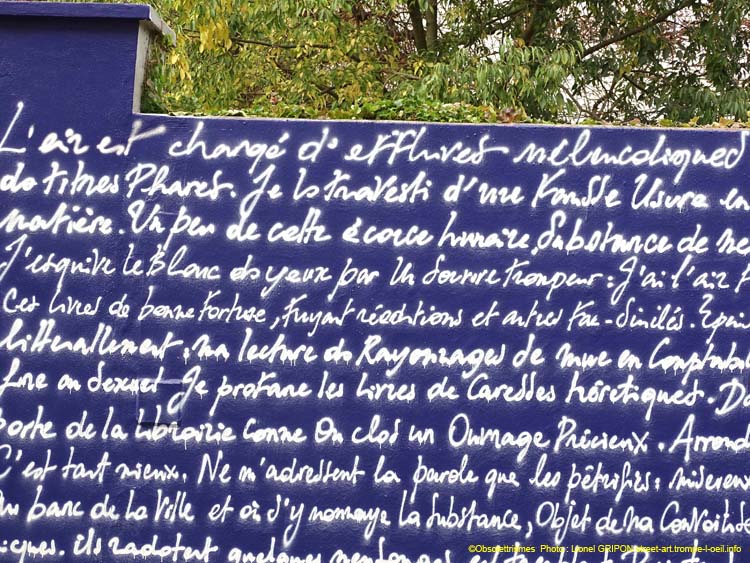 L'air est chargé d'effluves mélancoliques
de titres Phares. Je le travesti d'une Fausse Usure en
matière. Un peu de cette écorce humaine, Substance de
J'esquive le Blanc des yeux par Un Sourire trompeur : J'ai l'air
Ces livres de bonne fortune, fuyant rééditions et autres Fac-Similés.
littéralement, ma lecture de Rayonnages de mue en
Je profane les livres de Caresses hérétiques.
porte de la librairie comme On clos un Ouvrage Précieux.
C'est tant mieux. Ne m'adressent la parole que les pétrifiés,
banc de la Ville et où s'y monnaye la Substance, Objet de ma Convoitise
ils radotent quelques
©Obsolettrismes Photo : Lionel GRIPON street-art.trompe-l-oeil.info